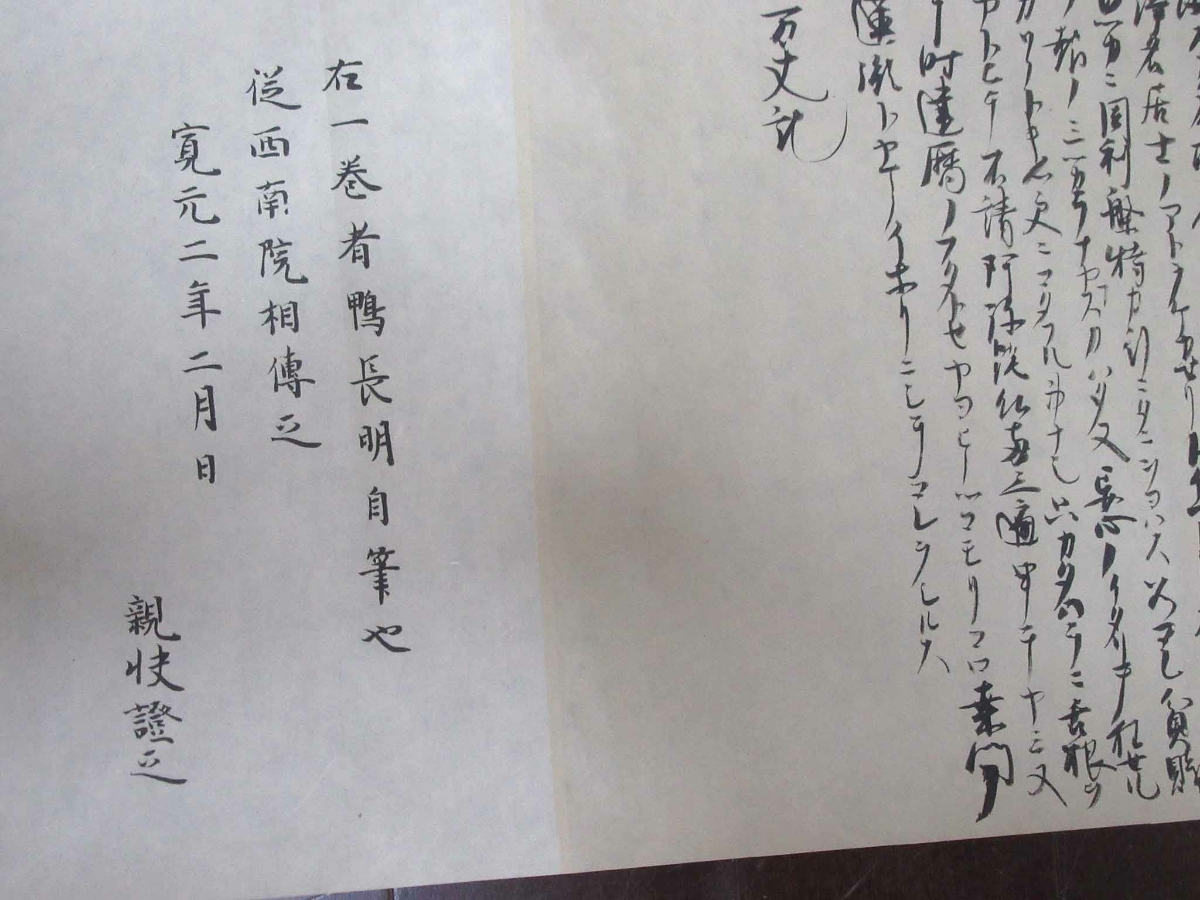 浄名居士ノアトヲケカセリ
カニ周利槃特カ行ニタニヲヨハス若コレ貧賎
ノ報ノミツカラナヤマスカハタ又妄心ノイタリテ狂セル
カソノトキ心更ニコタフル事ナシ只カタハラニ舌根ヲ
ヤトヒテ不請阿弥陀仏両三遍申テヤミヌ
于時建暦ノフタトセヤヨヒノツコモリコロ桑門ノ
蓮胤トヤマノイホリニシテコレヲシルス
方丈記
右一巻者鴨長明自筆也
従西南院相傳之
寛元二年二月日
親快證之